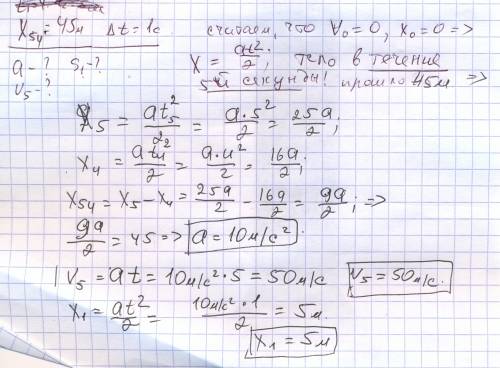 X₅₄ = 45м Δt = 1с
a - ? S₁ - ?
v₅ - ?
считаем, что V₀ = 0, x₀ = 0 =>
X = at²/2; тело в течение
5й секунды! прошло 45м =>
X₅ = at₅²/2 = a·5²/2 = 25a/2;
X₄ = at₄²/2 = a·4²/2 = 16a/2;
X₅₄ = X₅ - X₄ = 25a/2 - 16a/2 = 9a/2; =>
9a/2 = 45 => a = 10м/с².
V₅ = at = 10м/с²·5 = 50м/с V₅ = 50м/с.
X₁ = at²/2 = 10м/с²·1/2 = 5м.
X₁ = 5м